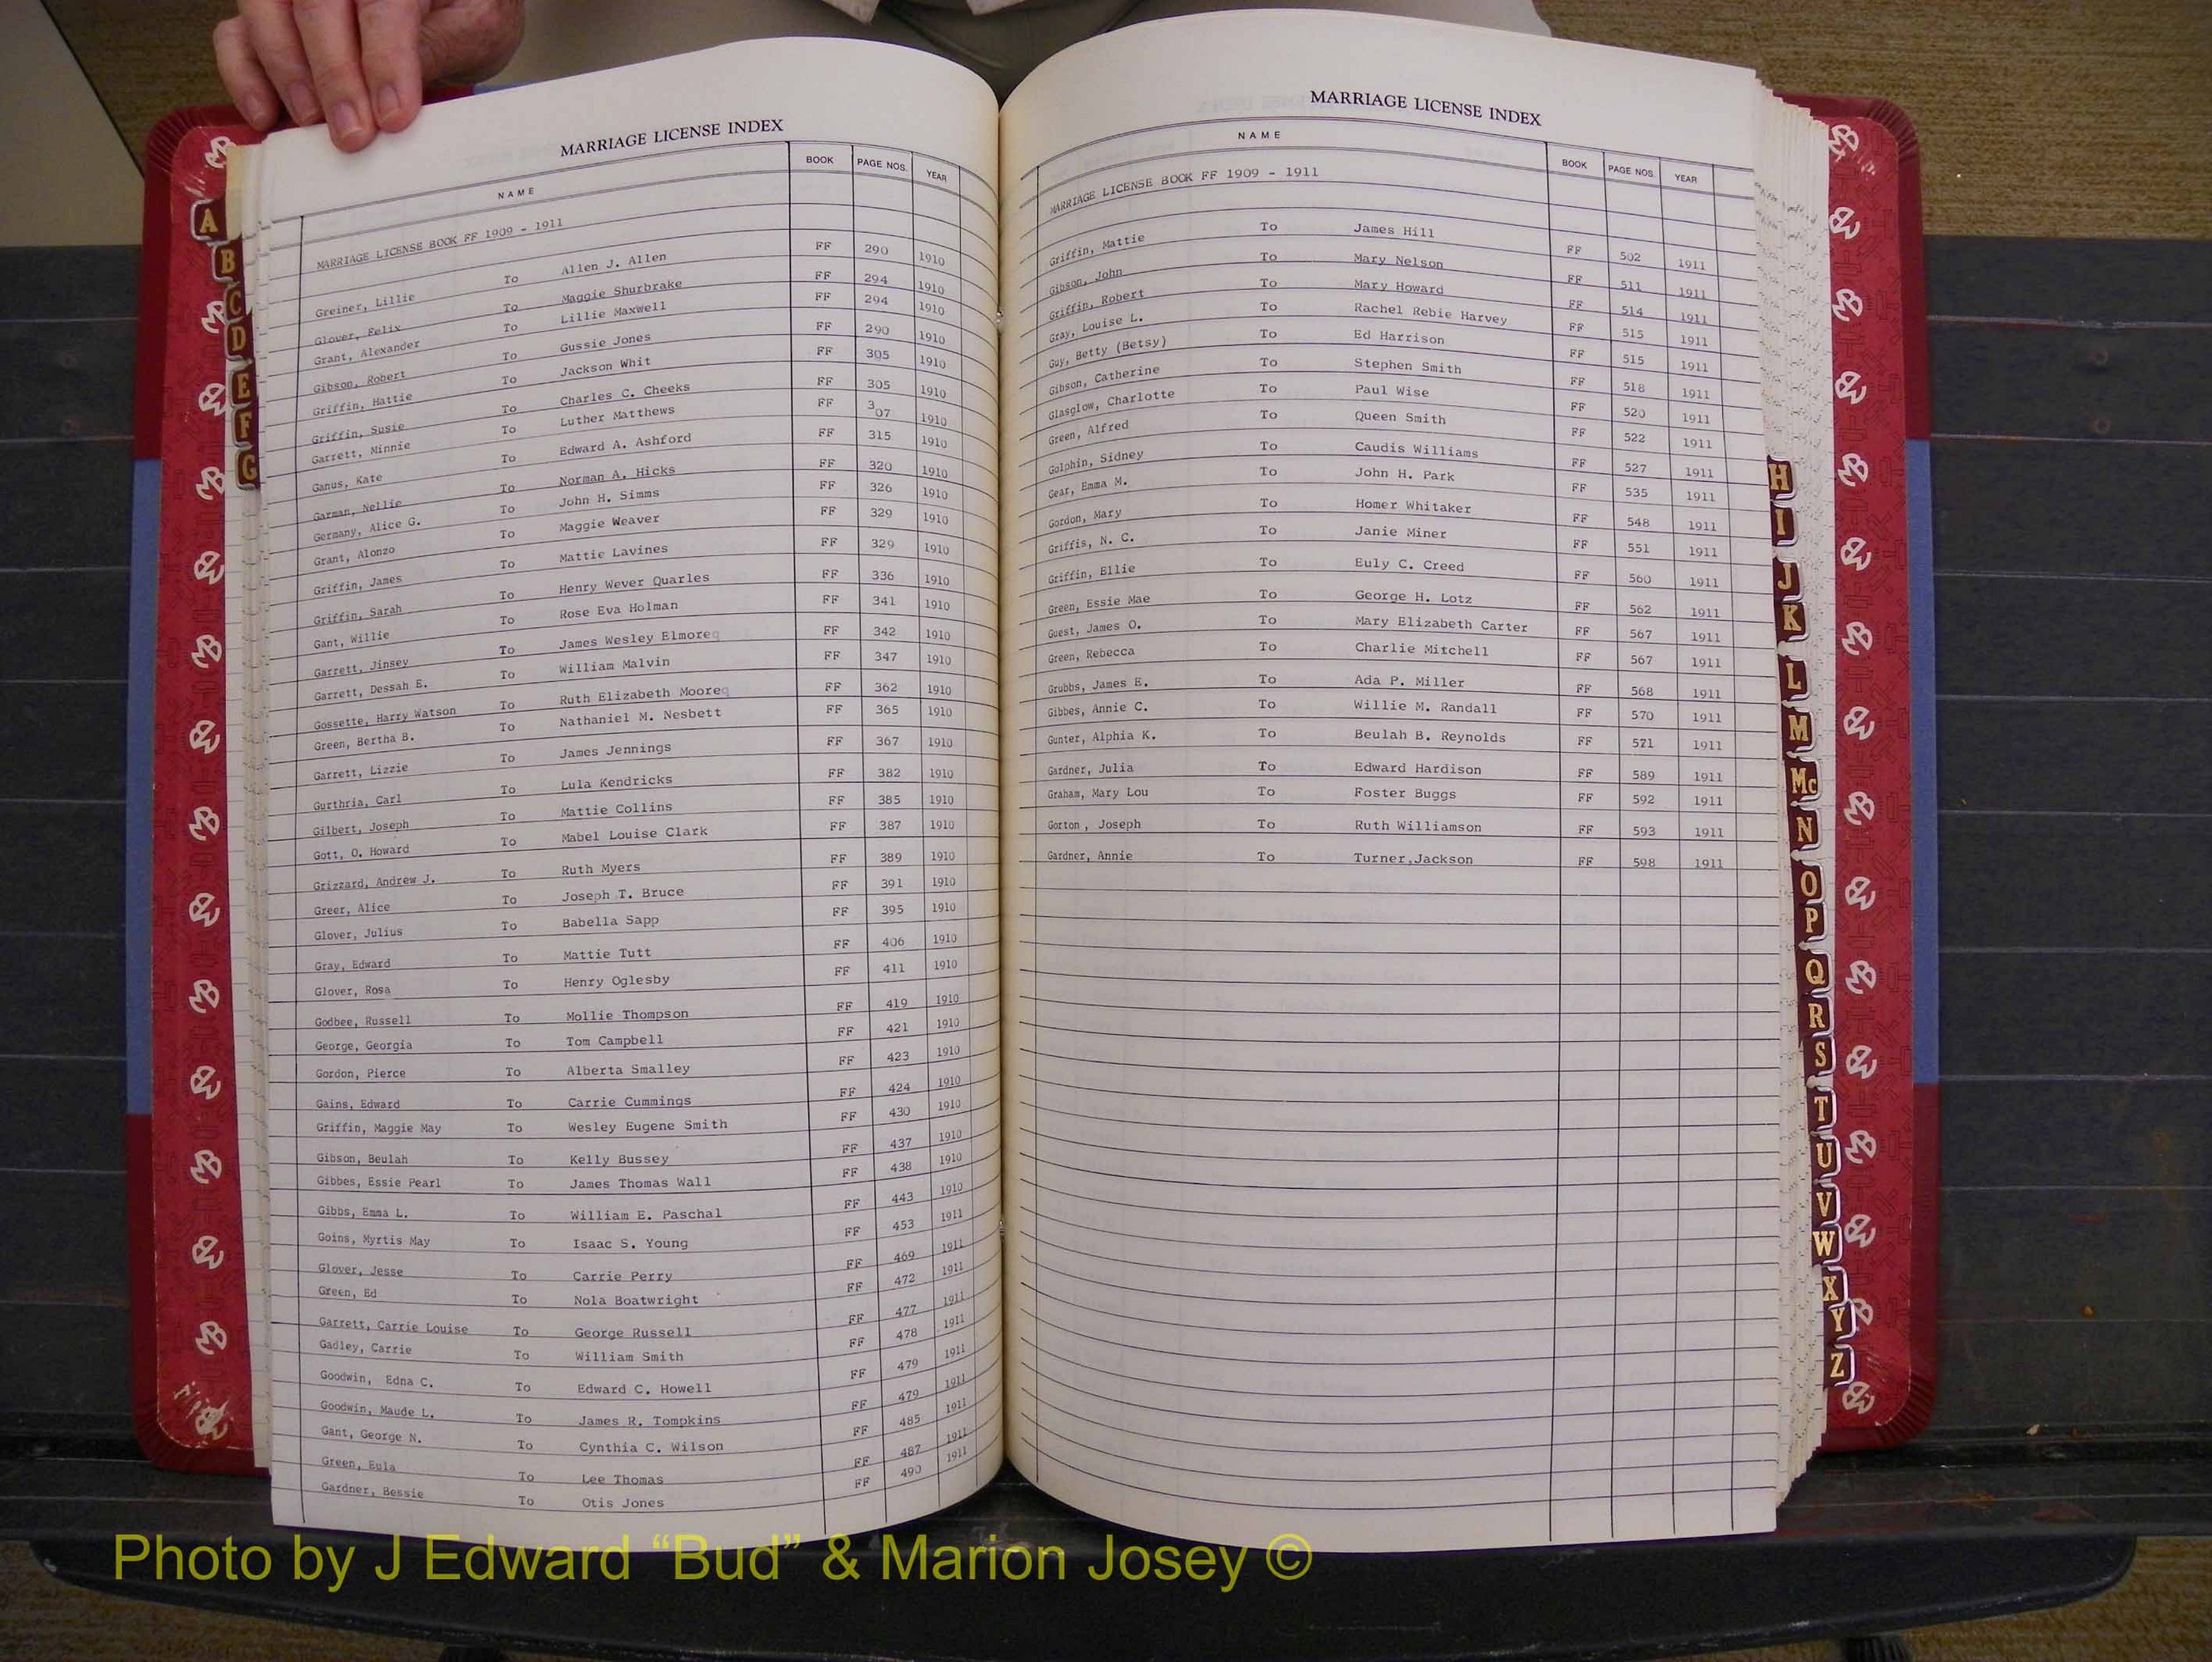 MARRIAGE LICENSE INDEX
NAME BOOK PAGE NOS. YEAR
MARRIAGE LICENSE BOOK FF 1909 - 1911
Greiner, Lillie To Allen J. Allen FF 290 1910
Glover, Felix To Maggie Shurbrake FF 294 1910
Grant, Alexander To Lillie Maxwell FF 294 1910
Gibson, Robert To Gussie Jones FF 290 1910
Griffin, Hattie To Jackson Whit FF 305 1910
Griffin, Susie To Charles C. Cheeks FF 305 1910
Garrett, Minnie To Luther Matthews FF 307 1910
Ganus, Kate To Edward A. Ashford FF 315 1910
Garman, Nellie To Norman A. Hicks FF 320 1910
Germany, Alice G. To John H. Simms FF 326 1910
Grant, Alonzo To Maggie Weaver FF 329 1910
Griffin, James To Mattie Lavines FF 329 1910
Griffin, Sarah To Henry Wever Quarles FF 336 1910
Gant, Willie To Rose Eva Holman FF 341 1910
Garrett, Jinsey To James Wesley Elmoreq FF 342 1910
Garrett, Dessah E. To William Malvin FF 347 1910
Gossette, Harry Watson To Ruth Elizabeth Mooreq FF 362 1910
Green, Bertha B. To Nathaniel M. Nesbett FF 365 1910
Garrett, Lizzie To James Jennings FF 367 1910
Gurthria, Carl To Lula Kendricks FF 382 1910
Gilbert, Joseph To Mattie Collins FF 385 1910
Gott, O. Howard To Mabel Louise Clark FF 387 1910
Grizzard, Andrew J. To Ruth Myers FF 389 1910
Greer, Alice To Joseph T. Bruce FF 391 1910
Glover, Julius To Babella Sapp FF 395 1910
Gray, Edward To Mattie Tutt FF 406 1910
Glover, Rosa To Henry Oglesby FF 411 1910
Godbee, Russell To Mollie Thompson FF 419 1910
George, Georgia To Tom Campbell FF 421 1910
Gordon, Pierce To Alberta Smalley FF 423 1910
Gains, Edward To Carrie Cummings FF 424 1910
Griffin, Maggie May To Wesley Eugene Smith FF 430 1910
Gibson, Beulah To Kelly Bussey FF 437 1910
Gibbes, Essie Pearl To James Thomas Wall FF 438 1910
Gibbs, Emma L. To William E. Paschal FF 443 1910
Goins, Myrtis May To Isaac S. Young FF 453 1911
Glover, Jesse To Carrie Perry FF 469 1911
Green, Ed To Nola Boatwright FF 472 1911
Garrett, Carrie Louise To George Russell FF 477 1911
Gadley, Carrie To William Smith FF 478 1911
Goodwin, Edna C. To Edward C. Howell FF 479 1911
Goodwin, Maude L. To James R. Tompkins FF 479 1911
Gant, George N. To Cynthia C. Wilson FF 485 1911
Green, Eula To Lee Thomas FF 487 1911
Gardner, Bessie To Otis Jones FF 490 1911
MARRIAGE LICENSE INDEX
NAME BOOK PAGE NOS. YEAR
MARRIAGE LICENSE BOOK FF 1909 - 1911
Griffin, Mattie To James Hill FF 502 1911
Gibson, John To Mary Nelson FF 511 1911
Griffin, Robert To Mary Howard FF 514 1911
Gray, Louise L. To Rachel Rebie Harvey FF 515 1911
Guy, Betty (Betsy) To Ed Harrison FF 515 1911
Gibson, Catherine To Stephen Smith FF 518 1911
Glasglow, Charlotte To Paul Wise FF 520 1911
Green, Alfred To Queen Smith FF 522 1911
Golphin, Sidney To Caudis Williams FF 527 1911
Gear, Emma M. To John H. Park FF 535 1911
Gordon, Mary To Homer Whitaker FF 548 1911
Griffis, N. C. To Janie Miner FF 551 1911
Griffin, Ellie To Euly C. Creed FF 560 1911
Green, Essie Mae To George H. Lotz FF 562 1911
Guest, James O. To Mary Elizabeth Carter FF 567 1911
Green, Rebecca To Charlie Mitchell FF 567 1911
Grubbs, James E. To Ada P. Miller FF 568 1911
Gibbes, Annie C. To Willie M. Randall FF 570 1911
Gunter, Alphia K. To Beulah B. Reynolds FF 571 1911
Gardner, Julia To Edward Hardison FF 589 1911
Graham, Mary Lou To Foster Buggs FF 592 1911
Gorton , Joseph To Ruth Williamson FF 593 1911
Gardner, Annie To Turner,Jackson FF 598 1911
A
B
C
D
E
F
G
H
I
J
K
L
M
Mc
N
O
P
Q
R
S
T
U
V
W
X
Y
Z
Photo by J Edward “Bud” & Marion Josey ©